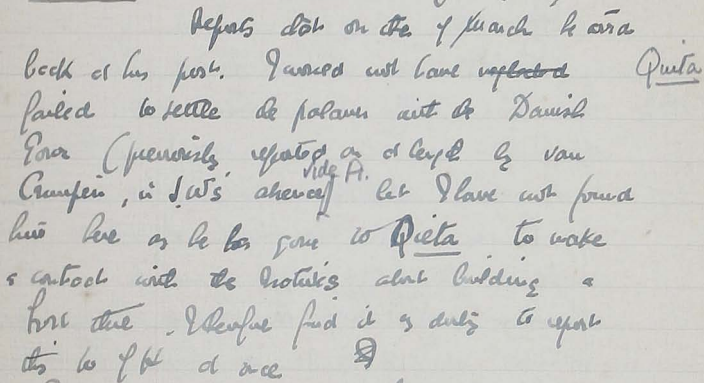 Reports that on the 9 March he was
back at his post. I would not have neglected Quita
failed to settle the palaver with the Danish
Govr (previously reported on at length by van
vide A.
in J.W's absence] but I have not found
him here as he has gone to Quita to make
a contract with the Natives about building a
Fort there. I therefore find it my duty to report
this to at once